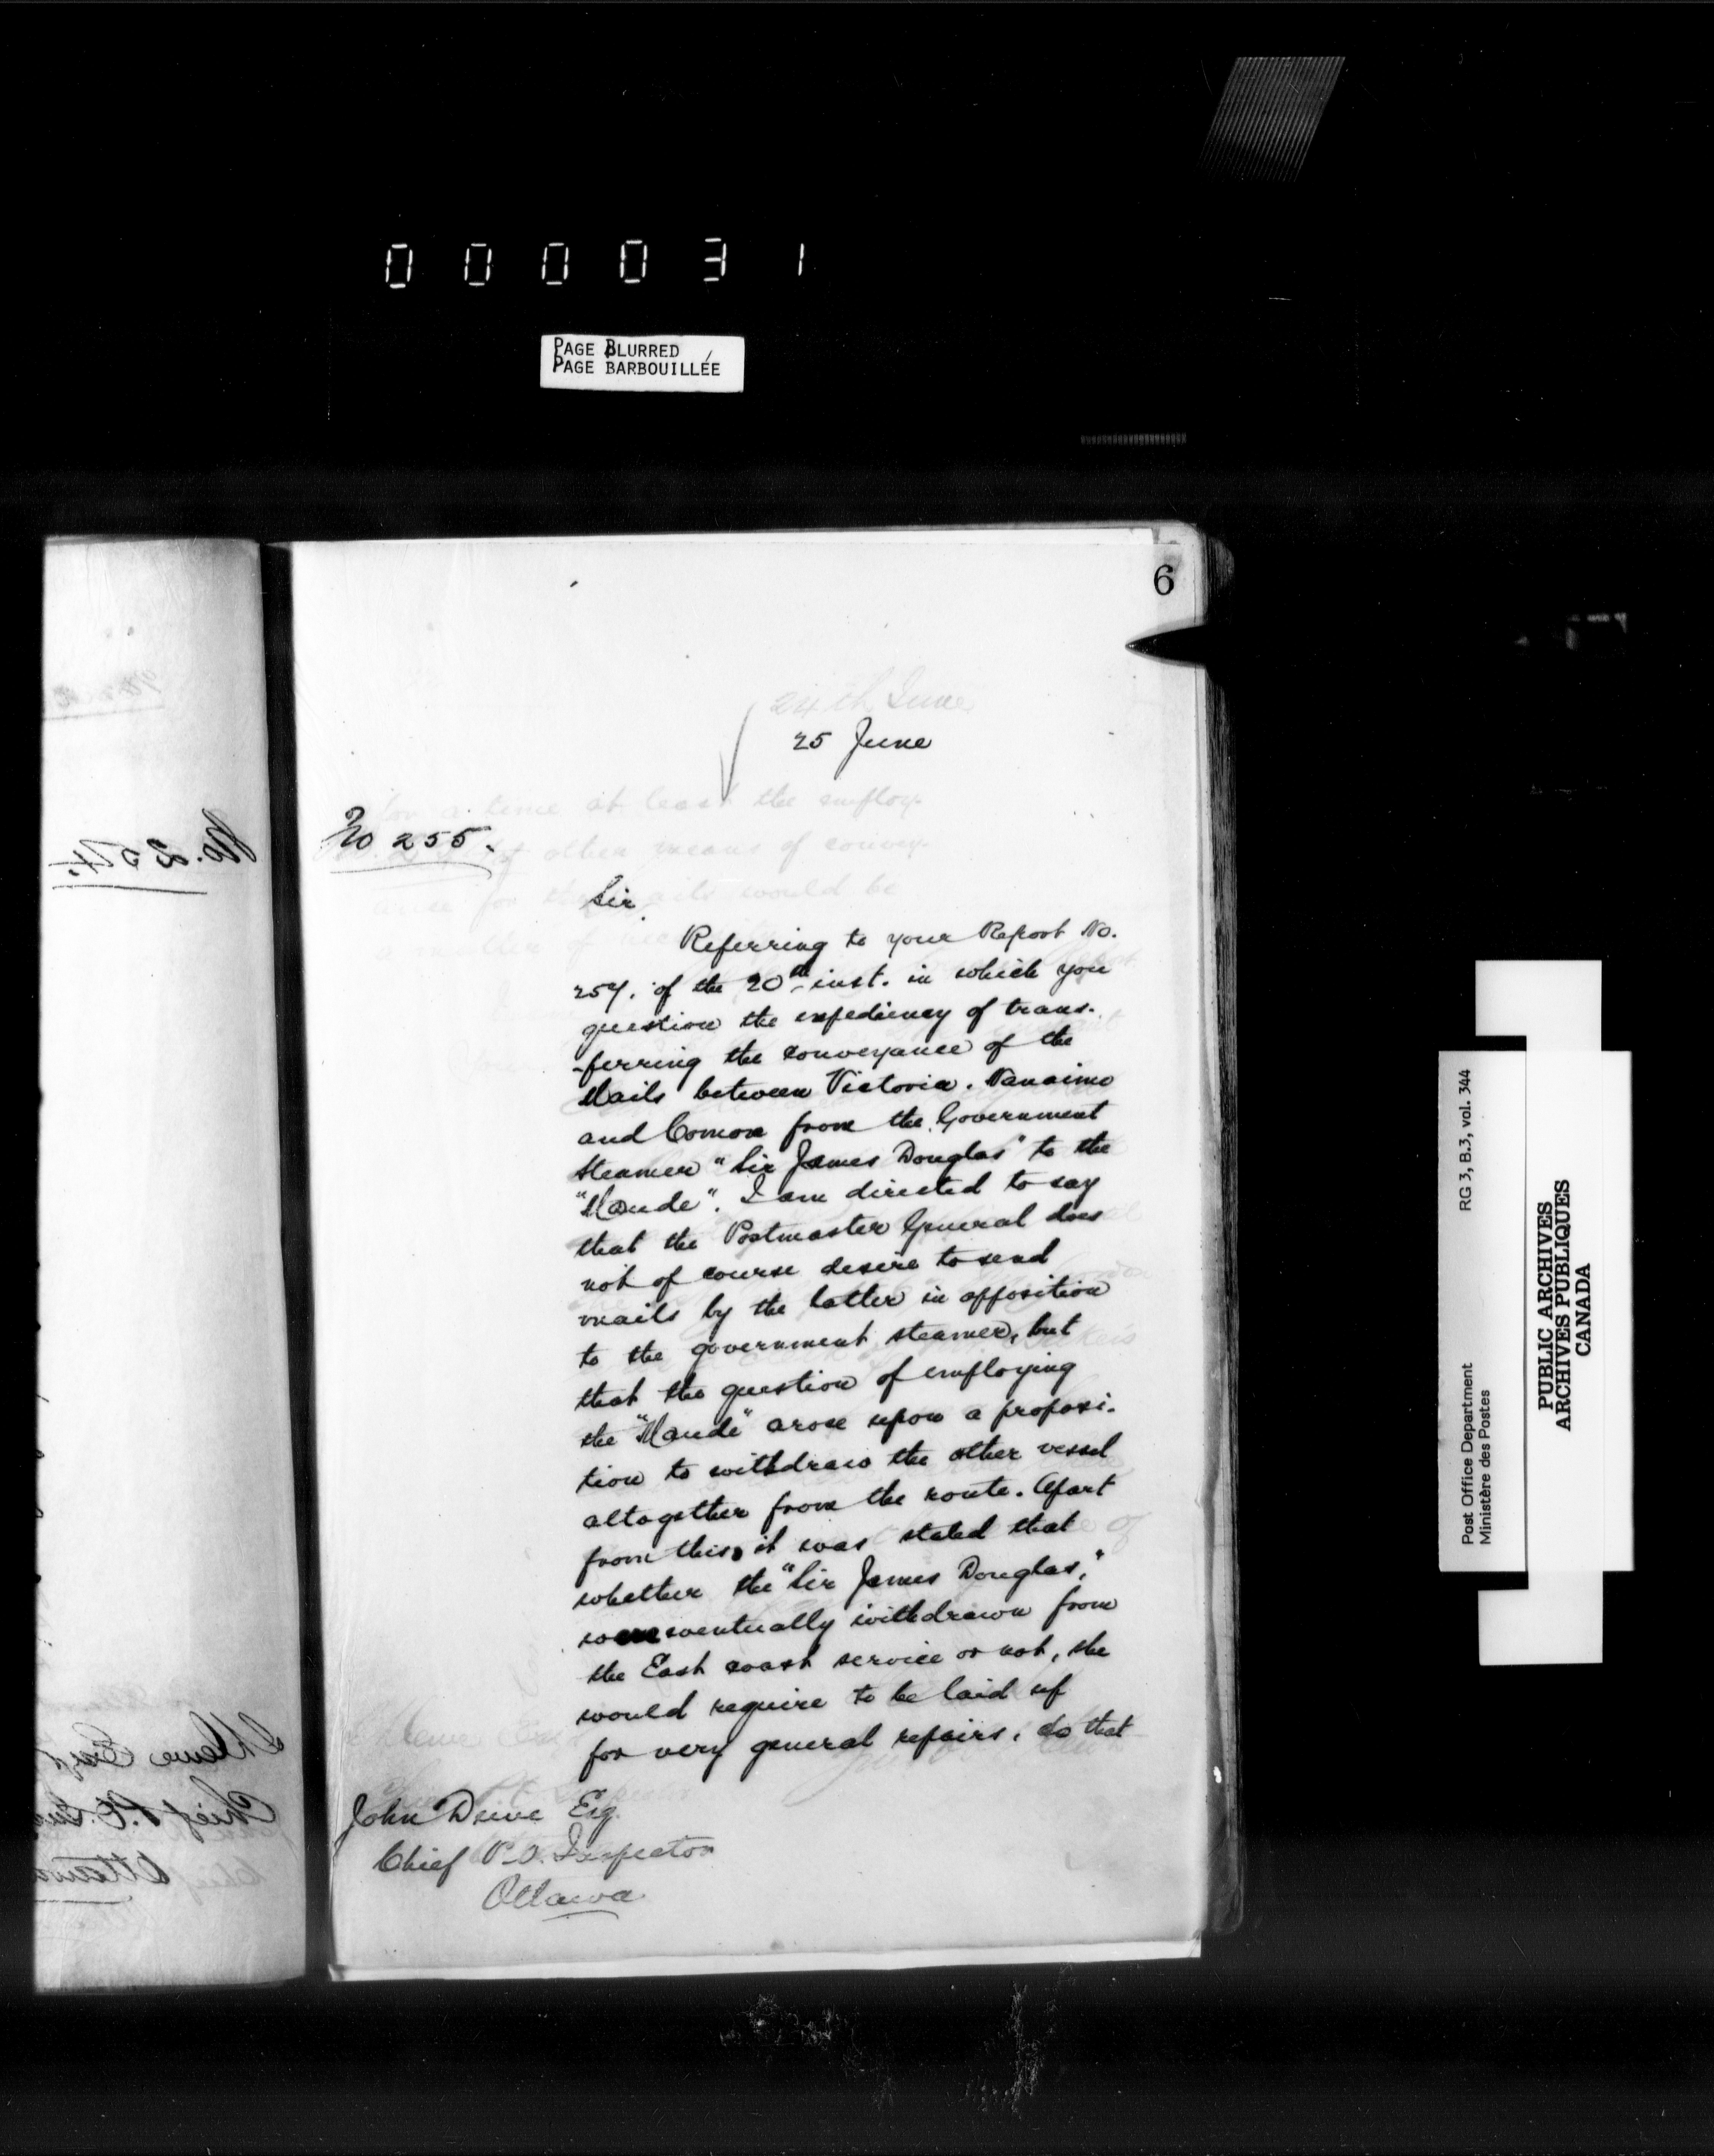 000031
PAGE BLURRED
PAGE BARBOUILLÉE
6
24th June
25 June
No 255.
Sir,
Referring to your Report No.
257, of the 20th inst. in which you
question the expediency of trans-
-ferring the conveyance of the
Mails between Victoria. Nanaimo
and Comox from the Government
Steamer "Sir James Douglas" to the
"Maude". I am directed to say
that the Postmaster General does
not of course desire to send
mails by the latter in opposition
to the government steamer, but
that the question of employing
the "Maude" arose upon a proposi-
tion to withdraw the other vessel
altogether from the route. Apart
from this, it was stated that
whether the "Sir James Douglas,"
were eventually withdrawn from
the East coast service or not, she
would require to be laid up
for very general repairs, so that
John Dewe Esq.
Chief P.O. Inspector
Ottawa
No. 254.
Dewe Esq
Chief P.O.
Ottawa
for a time at least the employ-
other means of convey-
for the mails would be
a matter of
RG 3, B.3, vol. 344
Post Office Department
Ministère des Postes
PUBLIC ARCHIVES
ARCHIVES PUBLIQUES
CANADA